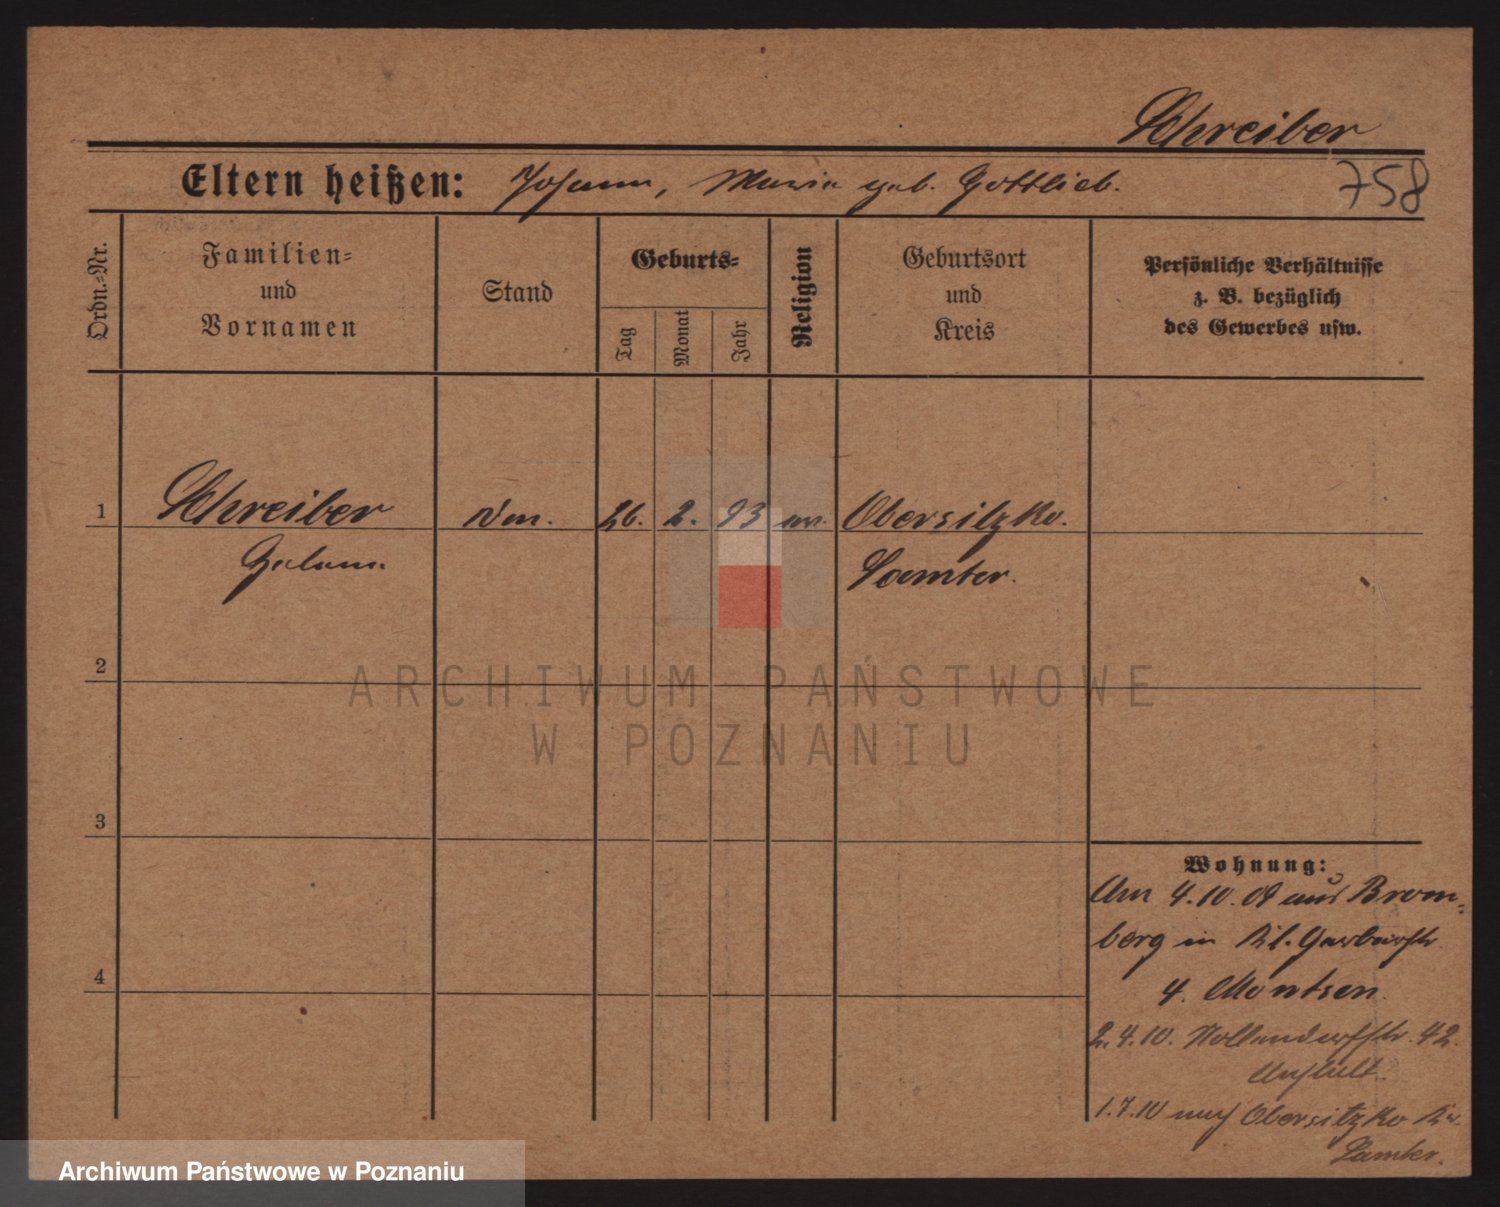 Schreiber
Eltern heißen: Johann, Maria geb. Gottlieb.
758
Ordn.-Nr.
Familien-
und
Vornamen
Stand
Geburts-
Tag
Monat
Jahr
Religion
Geburtsort
und
Kreis
Persönliche Verhältnisse
z. B. bezüglich
des Gewerbes usw.
1 Schreiber 26. 2. 93 Obersitzko.
Samter.
2
3
4
Wohnung:
Am 4.10.09 aus Brom-
berg in Kl. Gerberstr.
4.
2.4.10. Hollendorfstr. 42.
1.7.10 nach Obersitzko Kr.
Samter.
ARCHIWUM PAŃSTWOWE
W POZNANIU
Archiwum Państwowe w Poznaniu